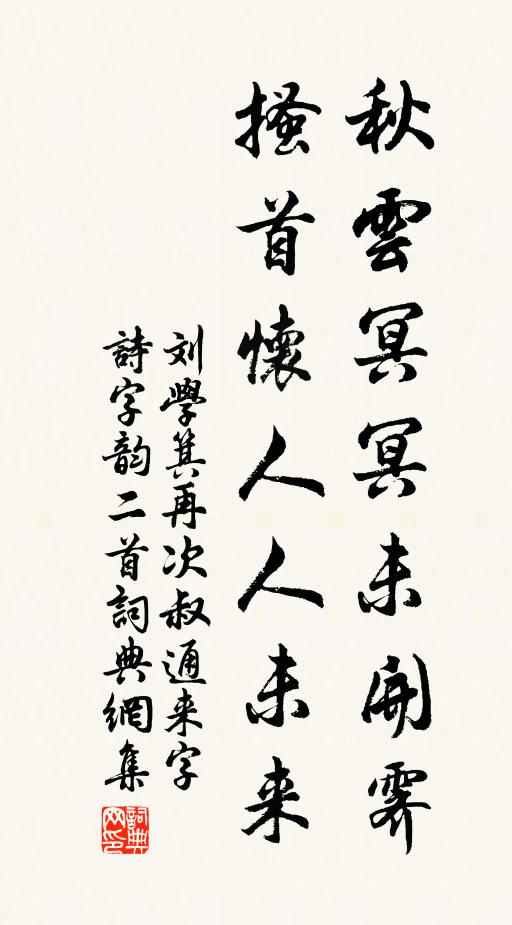 秋雲冥冥未開霽
搔首懷人人未来
刘學箕再次叔通来字
詩字韵二首詞典網集
詞典网印